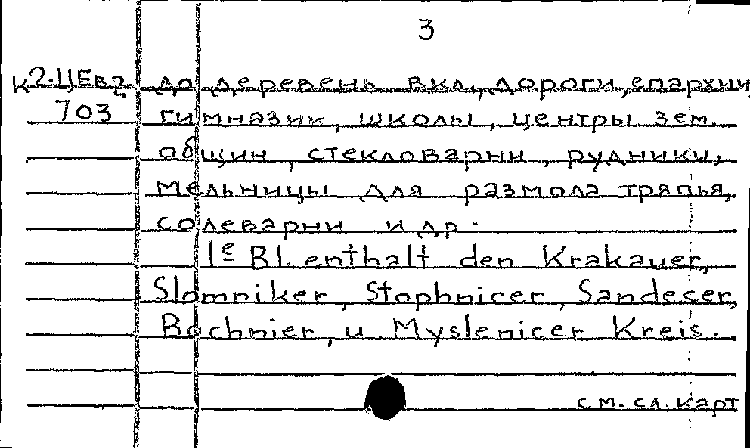 3
К2-ЦЕвг до деревень вкл., дороги, епархии
703 гимназии, школы, центры зем.
общин, стекловарни, рудники,
мельницы для размола тряпья,
солеварни и др.
1е Bl. enthält den Krakauer,
Slomniker, Stophnicer, Sandecer,
Bochnier, u Myslenicer Kreis.
см. сл. карт